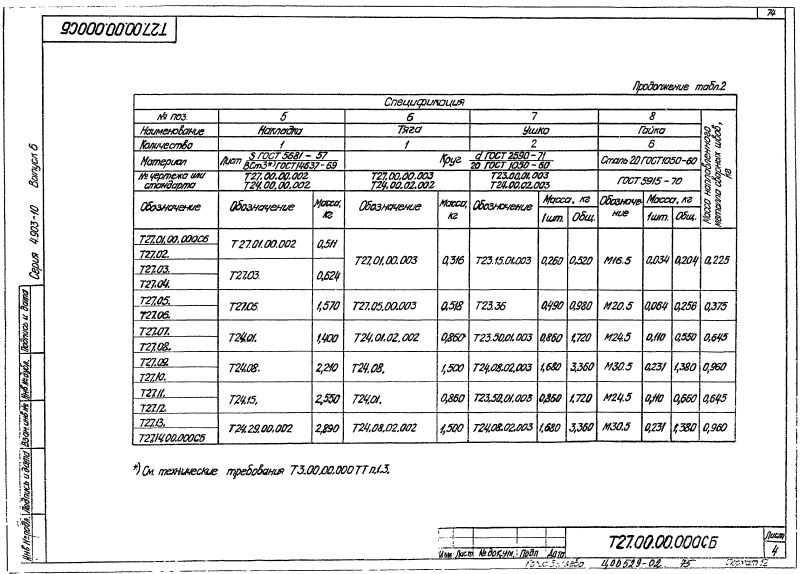 74
Т27.00.00.000СБ
Продолжение табл.2
Спецификация
№ поз. 5 6 7 8 Масса наплавленного металла сварных швов, кг
Наименование Накладка Тяга Ушко Гайка
Количество 1 1 2 6
Материал Лист S ГОСТ 5681 - 57 / ВСт3*) ГОСТ 14637-69 Круг d ГОСТ 2590-71 / 20 ГОСТ 1050-60 Сталь 20 ГОСТ1050-60
№ чертежа или стандарта Т27.00.00.002 Т24.00.00.002 Т27.00.00.003 Т24.00.02.002 Т23.00.01.003 Т24.00.02.003 ГОСТ 5915-70
Обозначение Обозначение Масса, кг Обозначение Масса, кг Обозначение Масса, кг 1 шт. Общ. Обозначение Масса, кг 1 шт. Общ.
Т27.01.00.000СБ Т27.01.00.002 0,511 Т27.01.00.003 0,316 Т23.15.01.003 0,260 0,520 М16.5 0,034 0,204 0,225
Т27.02.
Т27.03. Т27.03. 0,624
Т27.04.
Т27.05. Т27.05 1,570 Т27.05.00.003 0,518 Т23.36 0,490 0,980 М20.5 0,064 0,256 0,375
Т27.06.
Т27.07. Т24.01. 1,400 Т24.01.02.002 0,860 Т23.50.01.003 0,860 1,720 М24.5 0,110 0,550 0,645
Т27.08.
Т27.09. Т24.08. 2,210 Т24.08. 1,500 Т24.08.02.003 1,680 3,360 М30.5 0,231 1,380 0,960
Т27.10.
Т27.11. Т24.15. 2,550 Т24.01. 0,860 Т23.50.01.003 0,860 1,720 М24.5 0,110 0,660 0,645
Т27.12.
Т27.13. Т24.29.00.002 2,890 Т24.08.02.002 1,500 Т24.08.02.003 1,680 3,360 М30.5 0,231 1,380 0,960
Т27.14.00.000СБ
*) См. технические требования Т3.00.00.000 ТТ п.1.3.
Серия 4.903-10 Выпуск 6
Инв.№ подл. Подпись и дата Взам.инв.№ Инв.№ дубл. Подпись и дата
Изм. Лист № докум. Подп. Дата
Т27.00.00.000СБ
Лист
4
Ц00529-02 75 Формат 12